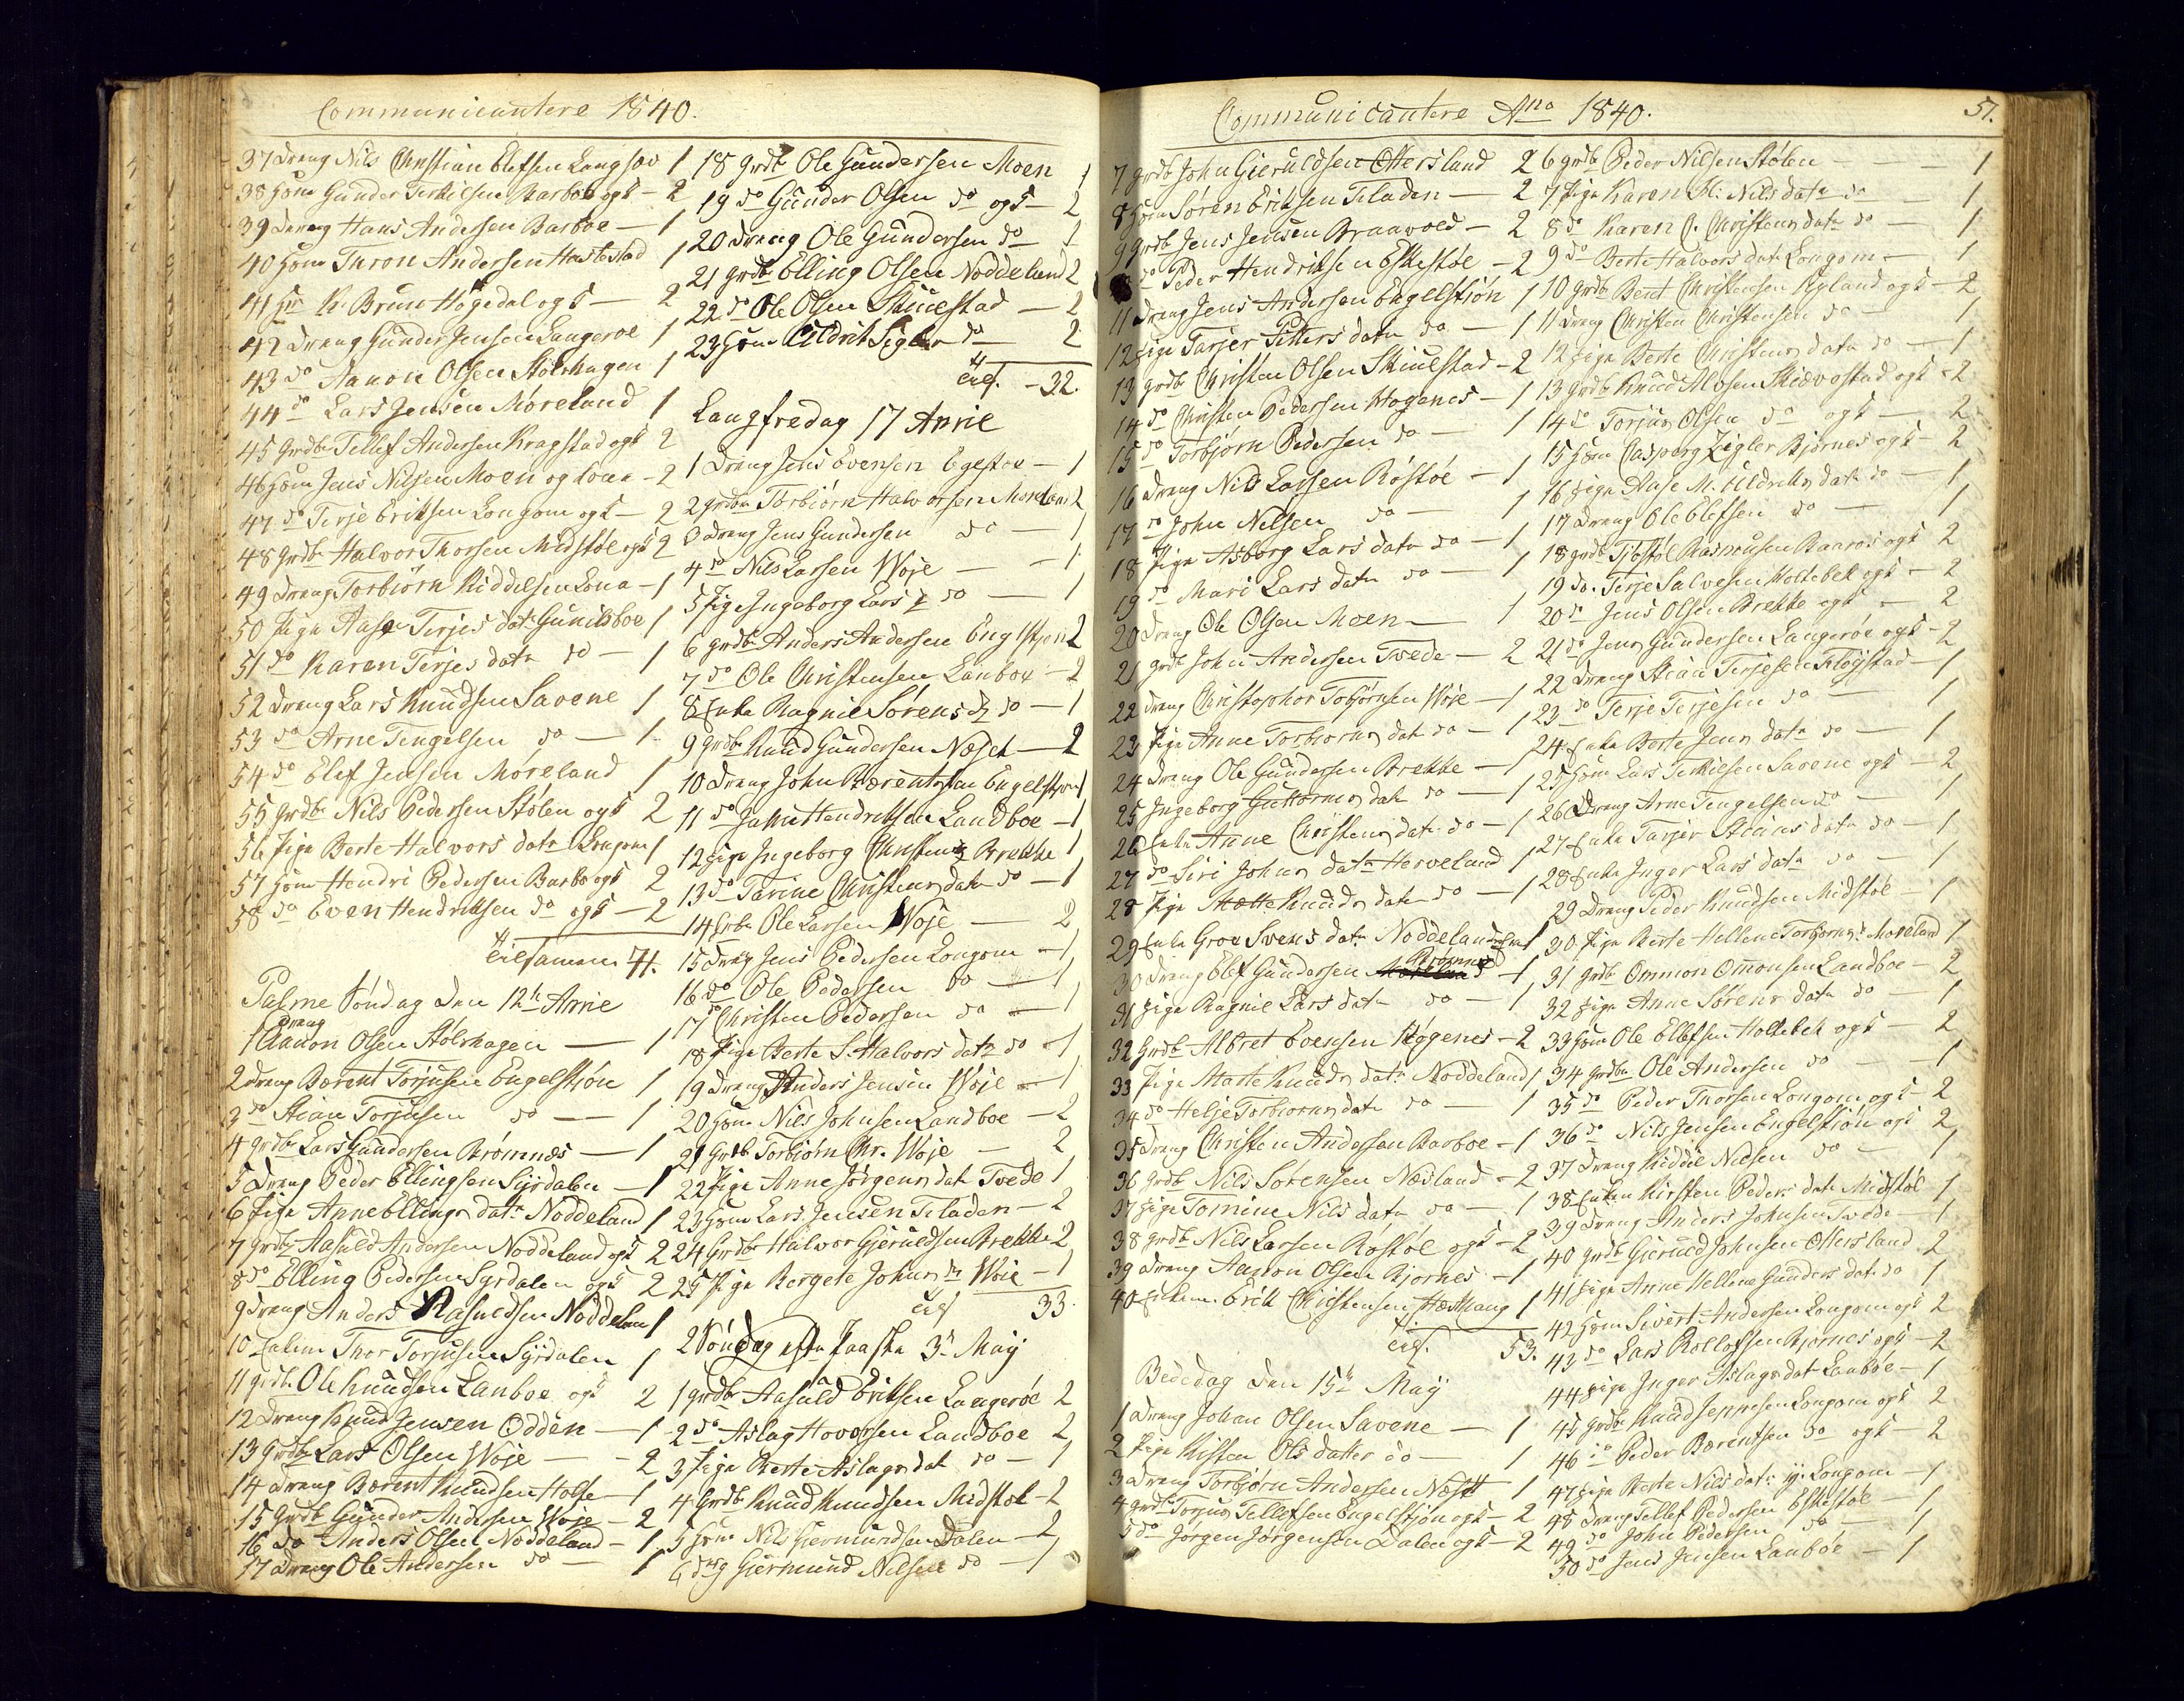 Communicantere 1840.
37 Drang Nils Christian Elefsen Langsov 1
38 Hom Gunder Terkilsen Barboe ogk - 2
39 Drang Hans Andersen Barboe - 1
40 Hom Thron Andersen Hastestad 1
41 Hr K. Brun Høgedal ogk - 2
42 Drang Gunder Jensen Langeroe 1
43 do Aanon Olsen Stølshagen 1
44 do Lars Jensen Moreland 1
45 Grdbr Tellef Andersen Kragstad ogk 2
46 Hom Jens Nilsen Moen og kone - 2
47 do Terje Eriksen Longom ogk - 2
48 Grdbr Halvor Thorsen Midstøl ogk 2
49 Drang Torbiørn Kiddelsen Lona - 1
50 Pige Aase Terjes datr Gunilsboe 1
51 do Karen Terjes datr do - 1
52 Drang Lars Knudsen Savene 1
53 do Arne Tengelsen do - 1
54 do Elef Jensen Moreland 1
55 Grdbr Nils Pedersen Stølen ogk 2
56 Pige Berte Halvors datr Longom 1
57 Hom Hendri Pedersen Barbo ogk 2
58 do Even Hendriksen do ogk - 2
Tilsamen 71.
Palme Søndag den 12te April
Drang
1 Aanon Olsen Stølshagen - 1
2 Drang Bærent Torjusen Engelstjøn 1
3 do Stian Torjusen do - 1
4 Grdbr Lars Gundersen Strømnæs - 1
5 Drang Peder Ellingsen Syrdalen - 1
6 Pige Anne Ellings datr Noddeland 1
7 Grdbr Aasuld Andersen Noddeland ogk 2
8 do Elling Pedersen Syrdalen ogk 2
9 Drang Anders Aasuldsen Noddelan 1
10 Thor Torjusen Syrdalen 1
11 Grdbr Ole Knudsen Lanboe ogk 2
12 Drang Knud Jensen Odden - 1
13 Grdbr Lars Olsen Woje - 2
14 Drang Bærent Knudsen - 1
15 Grdbr Gunder Andersen Woje - 2
16 do Anders Olsen Noddeland - 1
17 Drang Ole Andersen do - 1
18 Grdbr Ole Gundersen Moen 1
19 do Gunder Olsen do ogk - 2
20 Drang Ole Gundersen do - 1
21 Grdbr Elling Olsen Noddeland 2
22 do Ole Olsen Skiulestad - 2
23 Hom Uldrik Sigler do 2
Tils. - 32.
Langfredag 17 April
1 Drang Jens Evensen Egestøe - 1
2 Grdbr Torbiørn Halvorsen Moreland 2
3 Drang Jens Gundersen do - 1
4 do Nils Larsen Woje - 1
5 Pige Ingeborg Lars do - 1
6 Grdbr Anders Andersen Englstjøn 2
7 do Ole Christensen Lanboe - 2
8 Enke Ragnil Sørens do - 1
9 Grdbr Knud Gundersen Næset - 2
10 Drang John Bærentsen Engelstjøn 1
11 do Hendriksen Landboe - 1
12 Pige Ingeborg Christens Brekke 1
13 do Tarine Christens datr do - 1
14 Grbr Ole Larsen Woje - 2
15 Drang Jens Pedersen Longom - 1
16 do Ole Pedersen do - 1
17 do Christen Pedersen do - 1
18 Pige Berte S. Halvors datr do - 1
19 Drang Anders Jensen Woje - 1
20 Hom Nils Johnsen Landboe - 2
21 Grdb Torbiørn Chr. Woje - 2
22 Pige Anne Jørgens dat Tvede 1
23 Hom Lars Jensen Teladen - 2
24 Grdbr Halvor Gjeruldsen Brekke 2
25 Pige Bergete Johns Woie - 1
Tils 33.
2 Søndag efter Paaske 3de May
1 Grdbr Aasuld Eriksen Langerøe 2
2 do Aslag Hovorsen Landboe 2
3 Pige Berte Aslags dat do - 1
4 Grdb Knud Knudsen Midstøl - 2
5 Hom Nils Giermundsen Dalen - 2
6 Drg Giermund Nilsen do - 1
Communicantere Ano 1840. 51.
7 Grdb John Gieruldsen Ottersland 2
8 Hom Søren Eriksen Teladen - 2
9 Grdb Jens Jensen Braavold - 2
do Peder Hendriksen Eskestøl - 2
11 Drang Jens Andersen Engelstjøn 1
12 Pige Tarjer Pitters datr do - 1
13 Grdb Christen Olsen Skiulestad - 2
14 do Christen Pedersen Hogenes - 1
15 do Torbjørn Pedersen do - 1
16 Drang Nils Larsen Røstøl - 1
17 do John Nelsen do - 1
18 Pige Asborg Lars datr do - 1
19 do Mari Lars datr do - 1
20 Drang Ole Olsen Moen - 1
21 Grdb John Andersen Tvede - 2
22 Drang Christopher Torbjørnsen Woje - 1
23 Pige Anne Torbiørns dat do - 1
24 Drang Ole Gundersen Brekke - 1
25 Ingeborg Guttorms dat do - 1
26 Enke Anne Christens datr do - 1
27 do Siri Johns datr Herveland 1
28 Pige Mætte Knuds datr do - 1
29 Enke Groe Svens datr Noddeland 1
30 Drang Elef Gundersen Strømnes - 1
31 Pige Ragnil Lars datr do - 1
32 Grdb Albret Evensen Høgenes - 2
33 Pige Marte Knuds datr Noddeland 1
34 do Helje Torbiørns datr do - 1
35 Drang Christen Andersen Barboe - 1
36 Grdb Nils Sørensen Næsland - 2
37 Pige Tomine Nils datr do - 1
38 Grdb Nils Larsen Røstøl ogk - 2
39 Drang Aanon Olsen Bjornes - 1
40 Erik Christensen 1
Tils. 53.
Bededag den 15de May
1 Drang Johan Olsen Savene - 1
2 Pige Kisten Ols datter do - 1
3 Drang Torbjørn Andersen Næset 1
4 Grdb Torjus Tellefsen Engelstjøn ogk - 2
5 do Jørgen Jørgensen Dalen ogk - 2
6 Grdb Peder Nilsen Stølen - 1
7 Pige Karen Nils datr do - 1
8 do Karen C. Christens datr do - 1
9 do Berte Halvors dat Longom - 1
10 Grdb Bent Christensen Ryland ogk - 2
11 Drang Christen Christensen do - 1
12 Pige Berte Christens datr do - 1
13 Grdb Knud Alvsen Skiævestad ogk - 2
14 do Torjus Olsen do ogk - 2
15 Hom Casperg Zigler Bjørnes ogk - 2
16 Pige Aase M. Uldriks datr do - 1
17 Drang Ole Elefsen do - 1
18 Grdb Tjøstøl Rasmusen Baaros ogk 2
19 do Terje Salvesen Holtebek ogk - 2
20 do Jens Olsen Brekke ogk - 2
21 do Jens Gundersen Langerøe ogk - 2
22 Drang Stian Terjesen Fløystad - 1
23 do Terje Terjesen do - 1
24 Enke Berte Jens datr do - 1
25 Hom Lars Terkilsen Savene ogk - 2
26 Drang Arne Tengelsen do - 1
27 Enke Tarjer Stians datr do - 1
28 Enke Inger Lars datr do - 1
29 Drang Peder Knudsen Midstøl - 1
30 Pige Berte Hellene Torbjørns Moreland 1
31 Grdb Ommon Omonsen Landboe - 2
32 Pige Anne Sørens datr do - 1
33 Hom Ole Ellefsen Holtebek ogk - 2
34 Grdbr Ole Andersen do - 1
35 do Peder Thorsen Longom ogk - 2
36 do Nils Jensen Engelstjøn ogk 2
37 Drang Kiddil Nilsen do - 1
38 Enken Kirsten Peders datr Midstøl 1
39 Drang Anders Johnsen Tvede - 1
40 Grdb Gieruld Johnsen Ottersland 2
41 Pige Anne Hellene Gunders dat do 1
42 Hom Sivert Andersen Longom ogk 2
43 do Lars Rollofsen Bjørnes ogk - 2
44 Pige Inger Aslags dat Lanbøe - 1
45 Grdb Knud Jeppesen Longom ogk 2
46 do Peder Bærentsen do ogk - 2
47 Pige Berte Nils datr y. Longom - 1
48 Drang Tellef Pedersen Eskestøl - 1
49 do John Pedersen do - 1
50 do Jens Jensen Lanbøe - 1